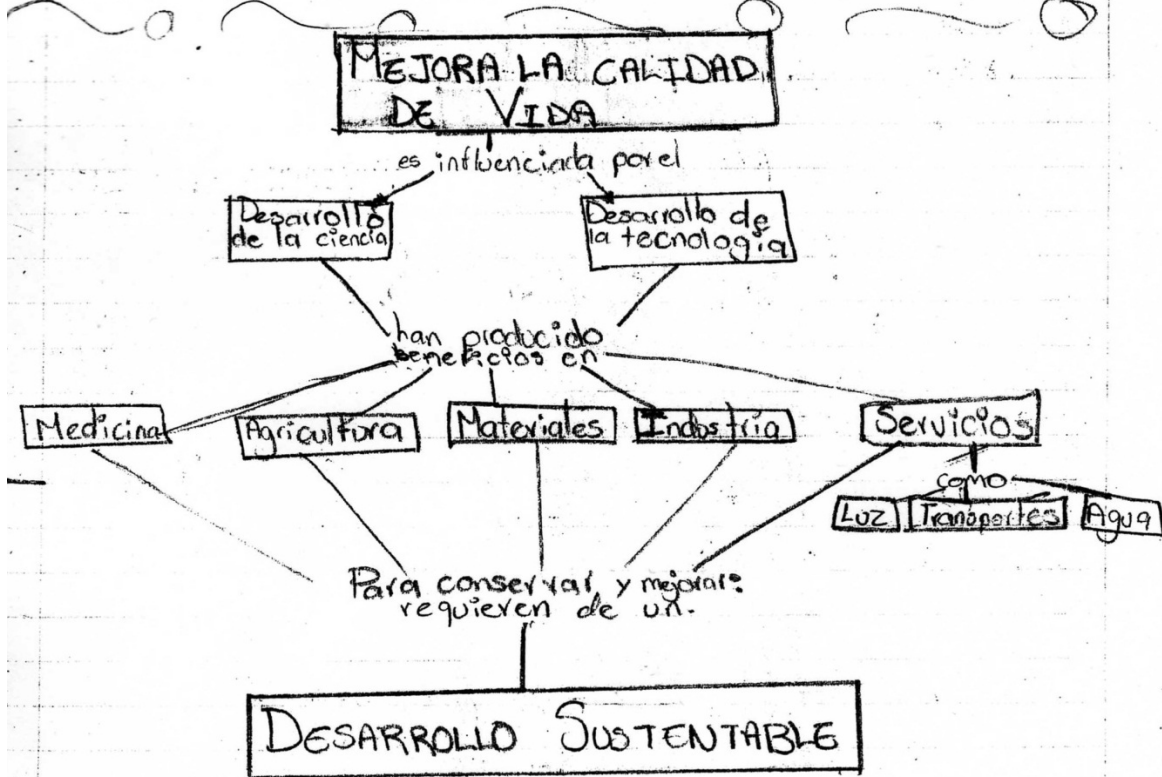 MEJORA LA CALIDAD
DE VIDA
es influenciada por el
Desarrollo
de la ciencia
Desarrollo de
la tecnología
han producido
beneficios en
Medicina
Agricultura
Materiales
Industria
Servicios
como
Luz
Transportes
Agua
Para conservar y mejorar:
requieren de un.
DESARROLLO SUSTENTABLE